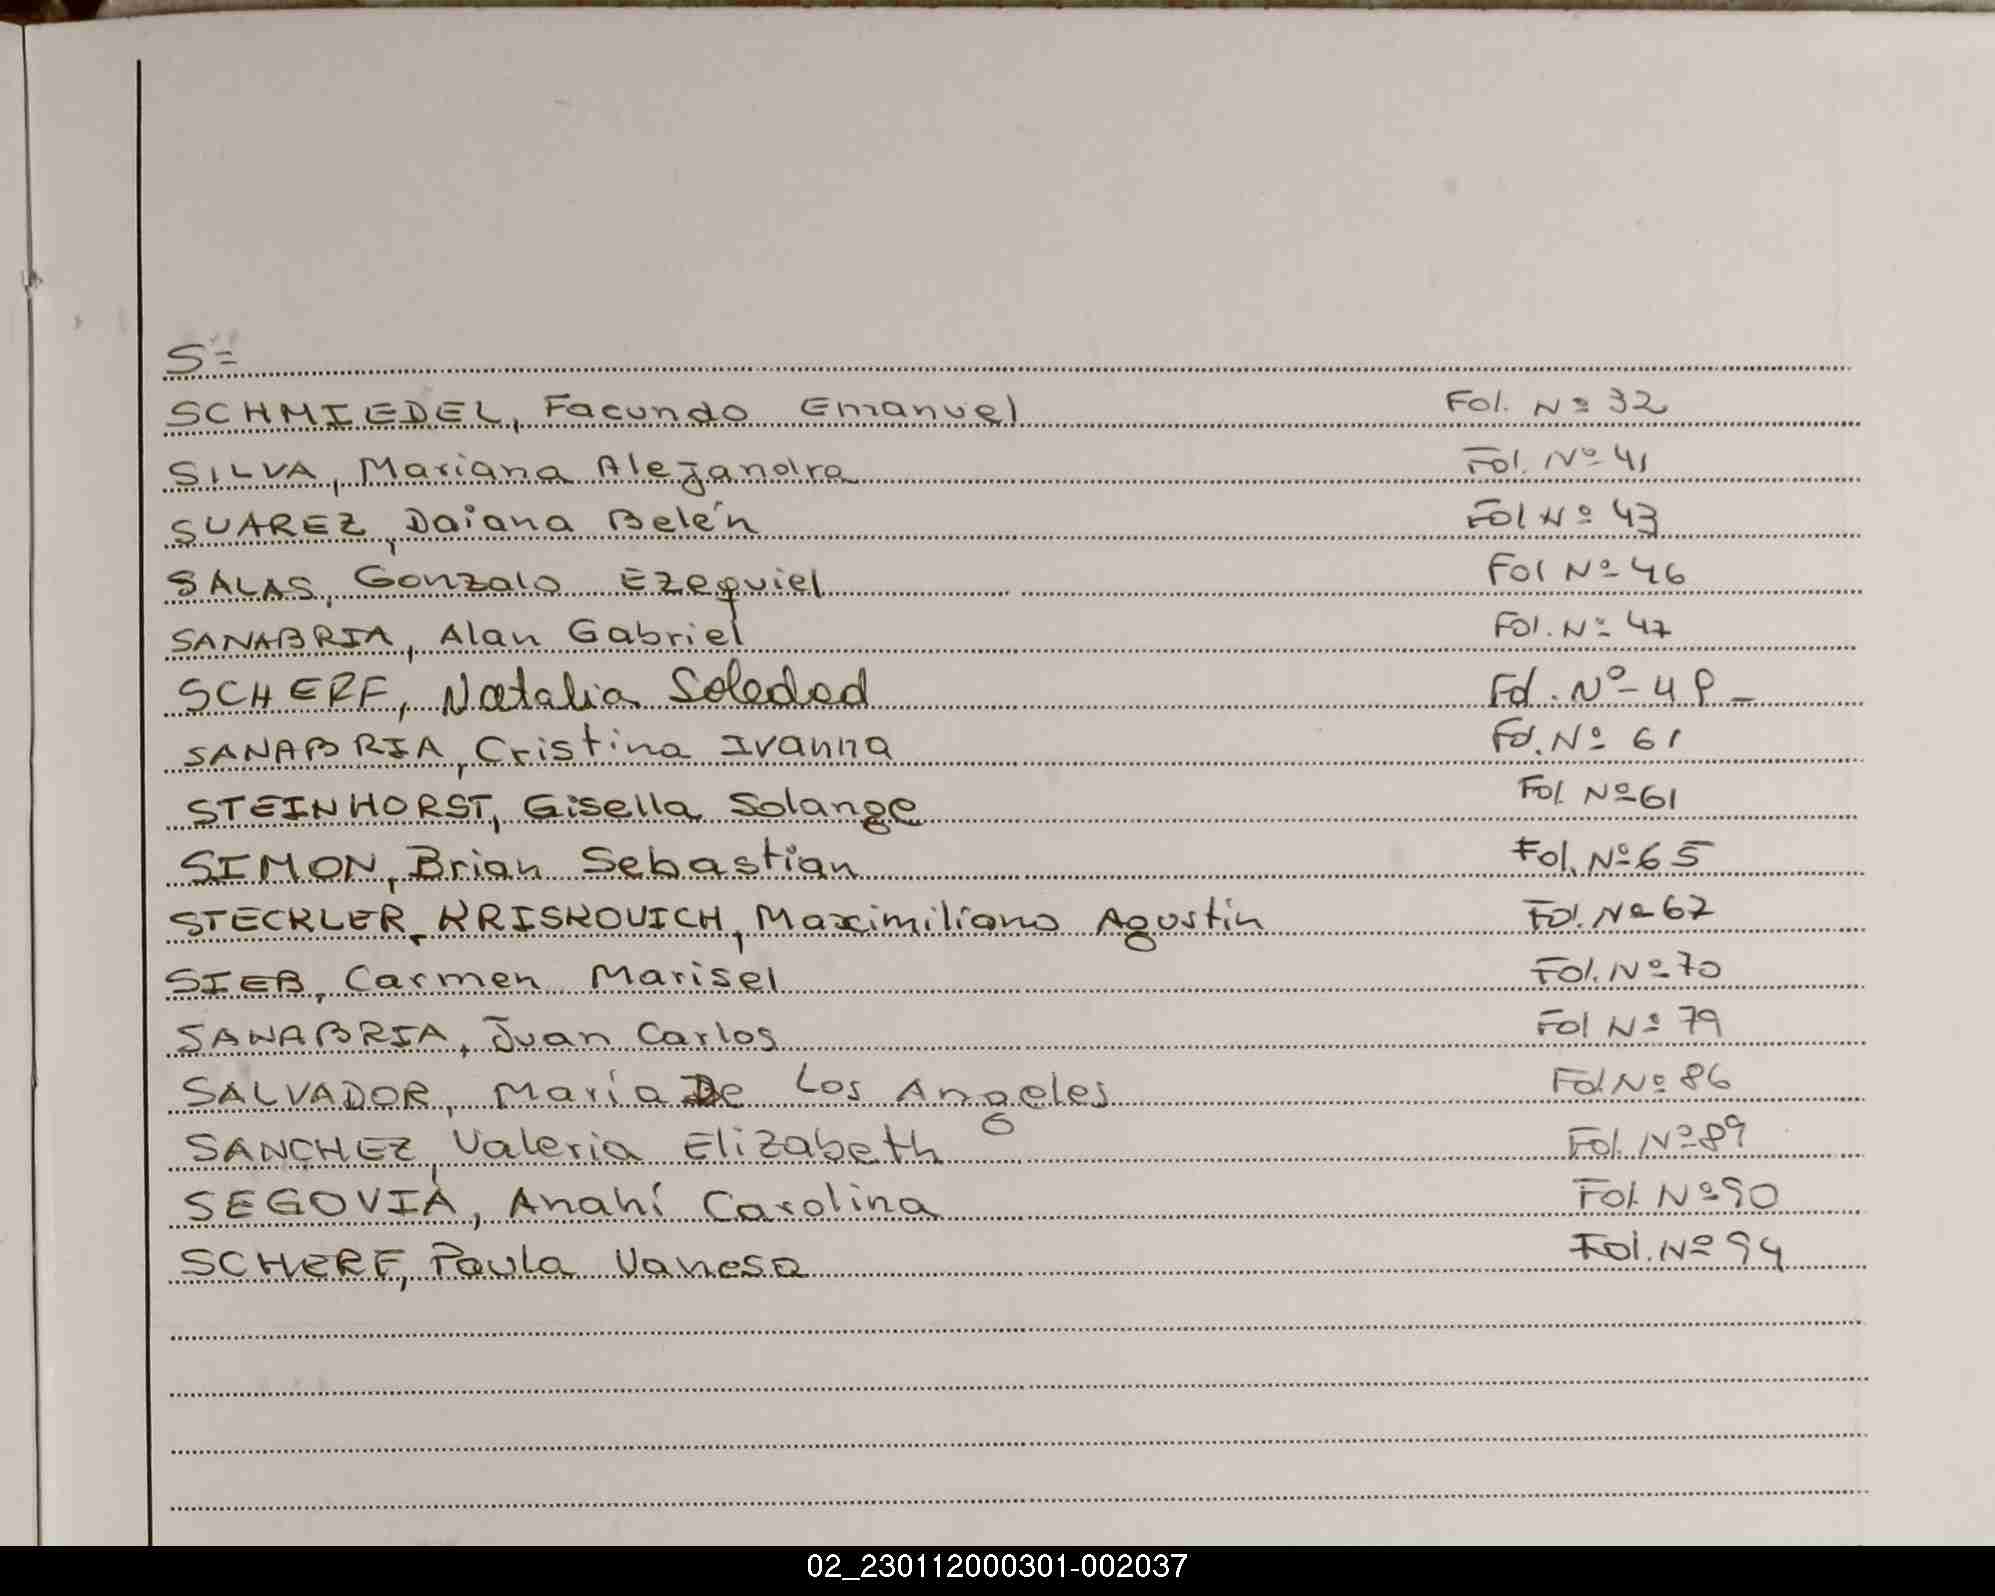 S=
SCHMIEDEL, Facundo Emanuel Fol. Nº 32
SILVA, Mariana Alejandra Fol. Nº 41
SUAREZ, Daiana Belén Fol Nº 43
SALAS, Gonzalo Ezequiel Fol Nº 46
SANABRIA, Alan Gabriel Fol. Nº 47
SCHERF, Natalia Soledad Fol. Nº
SANABRIA, Cristina Ivanna Fol. Nº 61
STEINHORST, Gisella Solange Fol. Nº 61
SIMON, Brian Sebastian Fol. Nº 65
STECKLER_KRISKOVICH, Maximiliano Agustin Fol. Nº 67
SIEB, Carmen Marisel Fol. Nº 70
SANABRIA, Juan Carlos Fol Nº 79
SALVADOR, María De Los Angeles Fol Nº 86
SANCHEZ, Valeria Elizabeth Fol. Nº 89
SEGOVIA, Anahí Carolina Fol. Nº 90
SCHERF, Paula Vanesa Fol. Nº 94
02_230112000301-002037